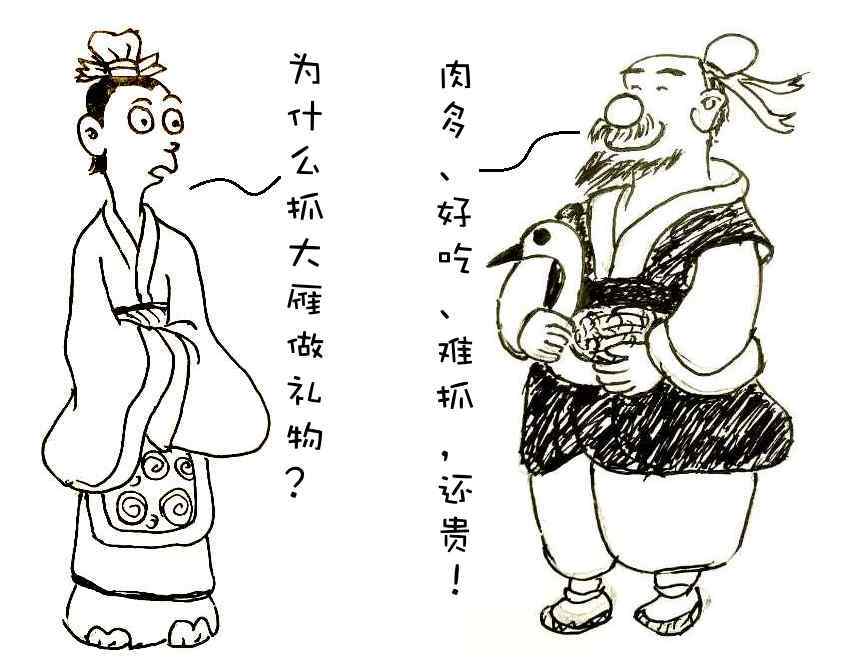 为什么抓大雁做礼物？
肉多、好吃、难抓，还贵！